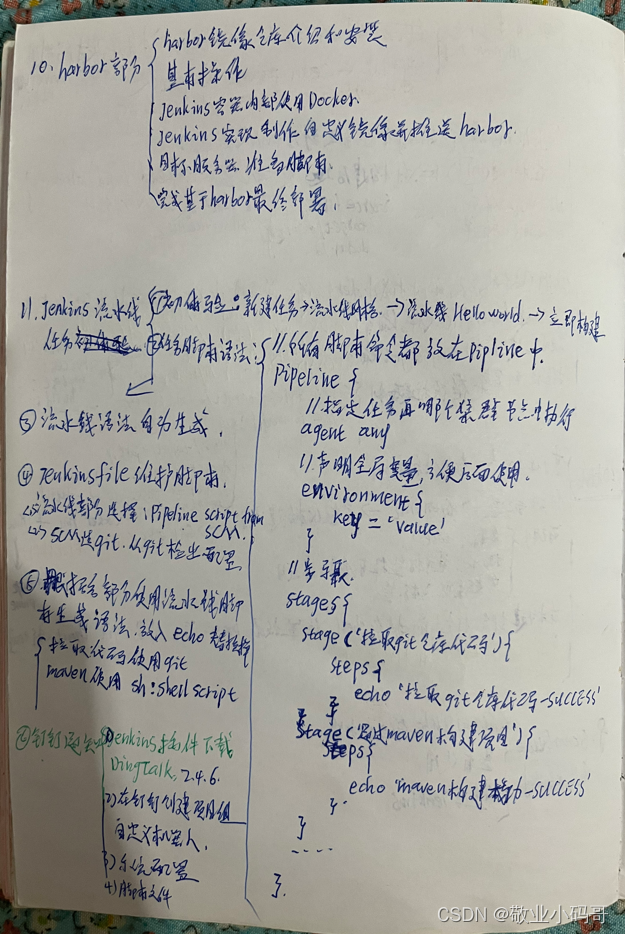 10. harbor部分
harbor镜像仓库介绍和安装
基本操作
Jenkins容器内部使用Docker.
Jenkins实现制作自定义镜像并推送harbor.
目标服务器准备脚本.
完成基于harbor最终部署.
11. Jenkins流水线任务
①初体验:新建任务→流水线风格.→流水线Hello world.→立即构建
②任务脚本语法:
//所有脚本命令都放在pipline中
pipeline {
//指定任务再哪个集群节点中执行
agent any
//声明全局变量,方便后面使用.
environment {
key = 'value'
}
//步骤.
stages {
stage('拉取git仓库代码') {
steps {
echo '拉取git仓库代码-SUCCESS'
}
}
stage('通过maven构建项目') {
steps {
echo 'maven构建-SUCCESS'
}
}
----
}.
③流水线语法自动生成.
④Jenkinsfile维护脚本.
<1>流水线部分选择:Pipeline script from SCM.
<2>SCM选git.从git检出配置
⑤部分使用流水线脚本生成语法,放入echo替换掉
拉取代码使用git
maven使用sh:shell script
Jenkins插件下载
DingTalk, 2.4.6.
2)在钉钉创建项目组
自定义机器人.
3)系统配置
4)脚本文件
CSDN @敬业小码哥